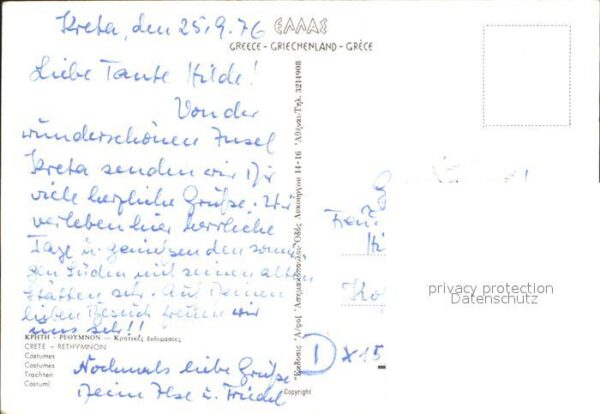 Kreta, den 25.9.76
ΕΛΛΑΣ
GREECE - GRIECHENLAND - GRÈCE
Liebe Tante Hilde!
Von der
wunderschönen Insel
Kreta senden wir Dir
viele herzliche Grüße. Wir
verleben hier herrliche
Tage u. genießen den sonni-
gen Süden mit seinen alten
Stätten sehr. Auf Deinen
lieben Besuch freuen wir
uns sehr!!
Nochmals liebe Grüße
Deine Ilse u. Friedel
ΚΡΗΤΗ - ΡΕΘΥΜΝΟΝ — Κρητικὲς ἐνδυμασίες
CRETE - RETHYMNON
Costumes
Costumes
Trachten
Costumi
Λυκούργου 14-16 Ἀθῆναι Τηλ. 3214908
Copyright
Frau
Hi
Ko
I
X 15
privacy protection
Datenschutz